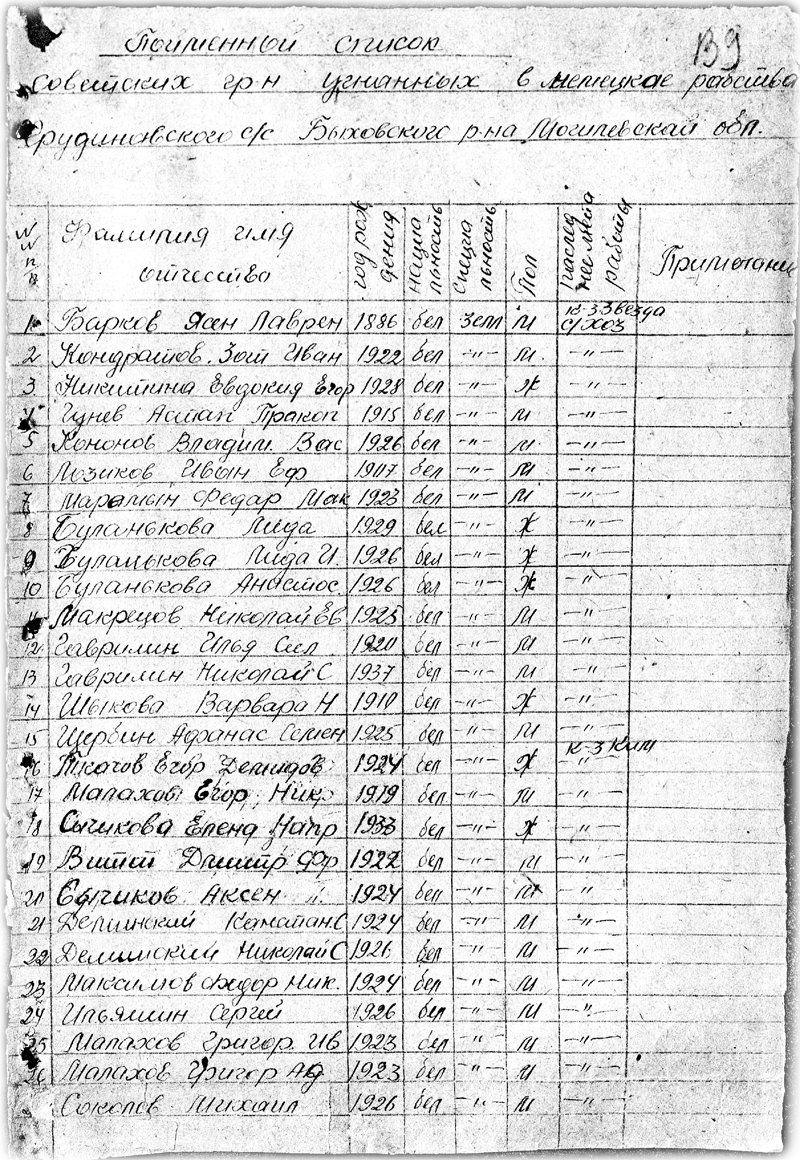 139
Поименный список
советских гр-н угнанных в немецкае рабства
Грудиновского с/с Быховского р-на Могилевскай обл.
№№ п п Фамилия имя отчество год рождения национальность специальность Пол последнее места работы Примечание
1 Барков Ясен Лаврен 1886 бел земл м к-з Звезда с/хоз
2 Кондратов Зот Иван 1922 бел —"— м —"—
3 Никитина Евдокия Егор 1928 бел —"— ж —"—
4 Гунев Астап Пракоп 1915 бел —"— м —"—
5 Кононов Владим. Вас 1926 бел —"— м —"—
6 Лозиков Ивын Еф 1907 бел —"— м —"—
7 Марамын Федар Мак 1923 бел —"— м —"—
8 Буланькова Лида 1929 бел —"— ж —"—
9 Буланькова Лида И. 1926 бел —"— ж —"—
10 Буланькова Анастос. 1926 бел —"— ж —"—
11 Макрецов Николай Ев 1925 бел —"— м —"—
12 Гаврилин Илья Сил 1920 бел —"— м —"—
13 Гаврилин Николай С 1937 бел —"— м —"—
14 Шыкова Варвара Н 1910 бел —"— ж —"—
15 Щербин Афанас Семен 1925 бел —"— м —"—
16 Ткачов Егор Демидов 1924 бел —"— ж к-з Ким —"—
17 Малахов Егор Ник 1919 бел —"— м —"—
18 Сычикова Елена Напр 1933 бел —"— ж —"—
19 Витот Дмитр Фр 1922 бел —"— м —"—
20 Сычиков Аксен 1924 бел —"— м —"—
21 Деминский Канстан. С 1924 бел —"— м —"—
22 Деминский Николай С 1926 бел —"— м —"—
23 Максимов Федор Ник. 1924 бел —"— м —"—
24 Ильяшин Сергей 1926 бел —"— м —"—
25 Малахов Григор. Ив 1923 бел —"— м —"—
26 Малахов Григор Ад 1923 бел —"— м —"—
Соколов Михаил 1926 бел —"— м